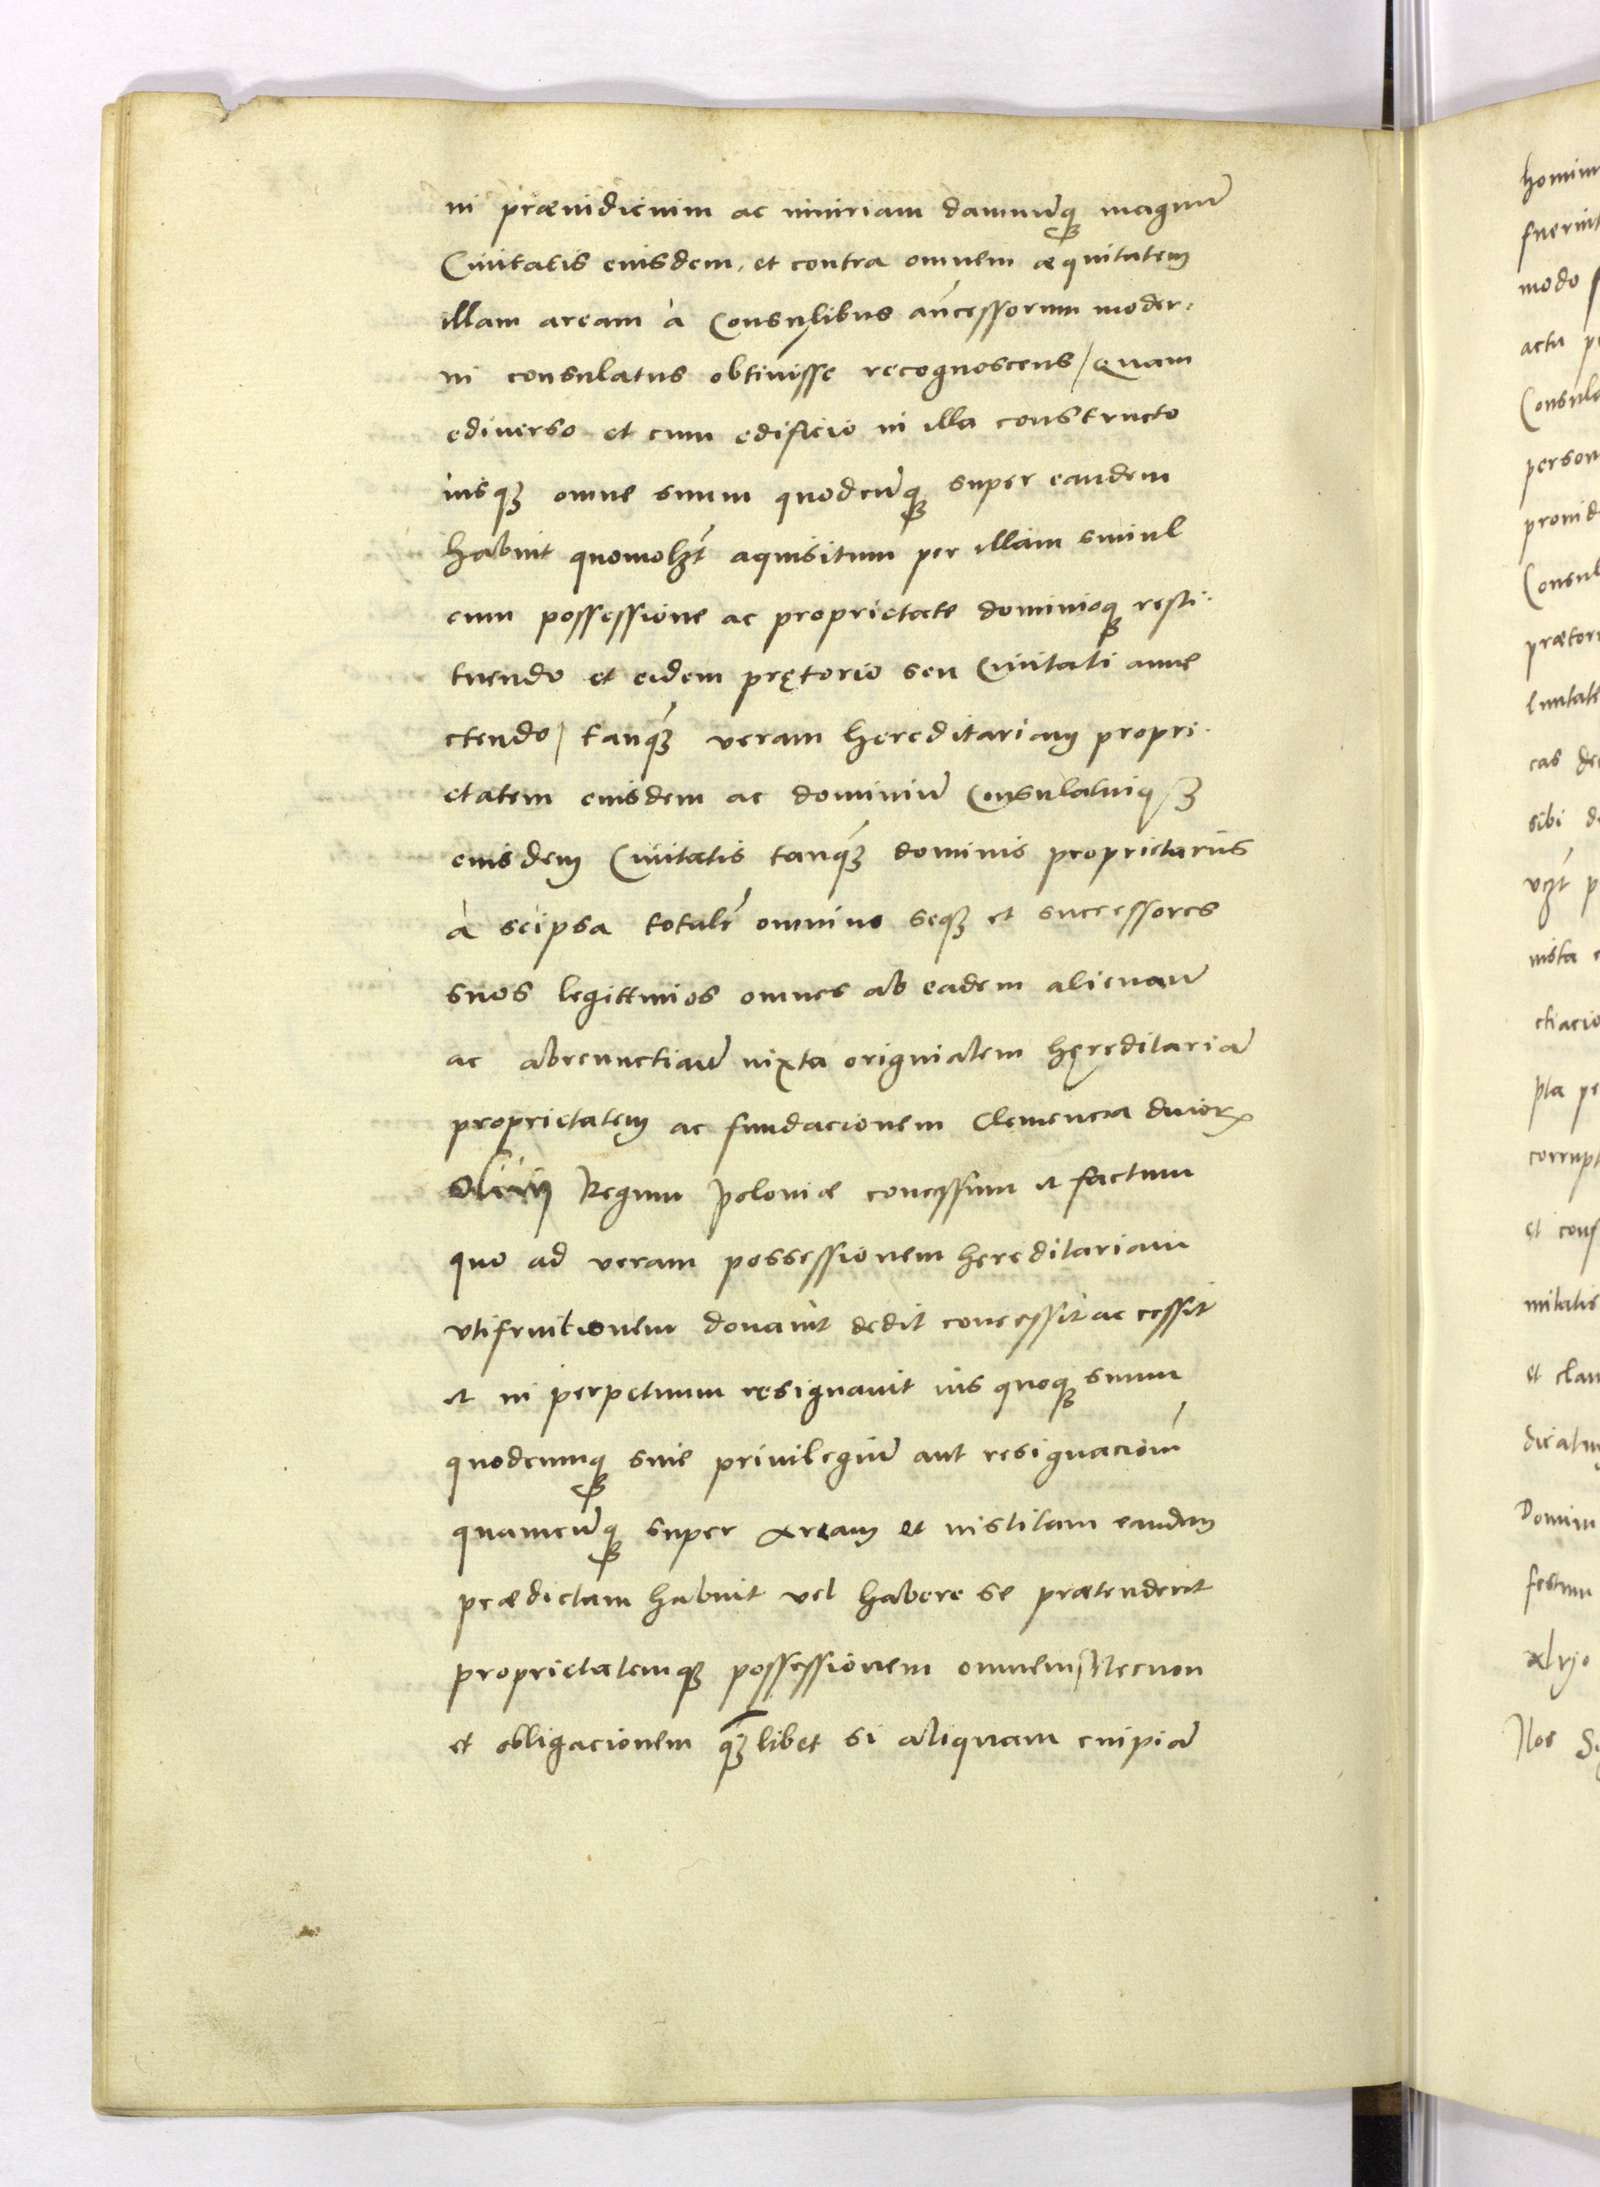 in præiudicium ac iniuriam damnūq₃ magnū
Ciuitatis eiusdem, et contra omnem æquitatem
illam aream à Consulibus añcessorum moder-
ni consulatus obtinisse recognoscens / Quam
ediuerso et cum edificio in illa constructo
iusq₃ omne suum quodcūq₃ super eandem
habuit quomolꝫt aquisitum per illam simul
cum possessione ac proprietate dominioq₃ resti-
tuendo et eidem prętorio seu Ciuitati anne
ctendo / tanq₃ ueram hereditariam propri-
etatem eiusdem ac dominiū Consulatuiq₃
eiusdem Ciuitatis tanq₃ dominis proprietariis
à seipsa totalr̃ omnino seq₃ et successores
suos legittimos omnes ab eadem alienauͥ
ac abrenunctiauͥ iuxta originalem hęreditariā
proprietatem ac fundacionem Clemencia diuorꝝ
olim Regum Poloniæ concessum et factum
quo ad ueram possessionem hereditariam
vtifruitionem donauit dedit concessit ac cessit
et in perpetuum resignauit ius quoq₃ suum
quodcumq₃ siue priuilegiū aut resignacionē
quamcūq₃ super Aream et institam eandem
prædictam habuit vel habere se prætenderit
proprietatemq₃ possessionem omnem / Necnon
et obligacionem q₃libet si aliquam cuipiā
homin
fuerint
modo
actu
Consula
person
prouid
Consul
prætori
luntate
cas
sibi
vꝫt
iusta
ctiacio
corrupt
et cons
nitatis
et clau
dicatu
Domin
festum
xlvjo
Nos